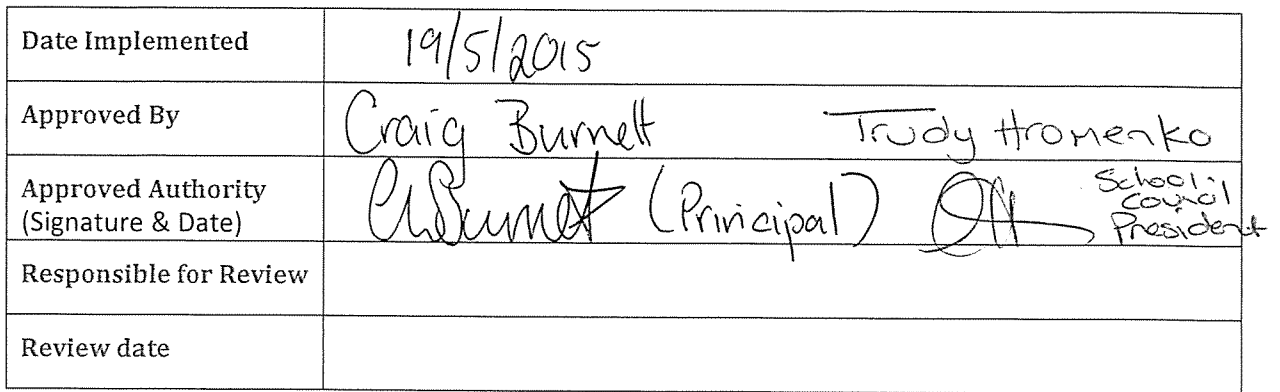 Date Implemented 19/5/2015
Approved By Craig Burnett Trudy Hromenko
Approved Authority
(Signature & Date) (Principal) School
Council
President
Responsible for Review
Review date